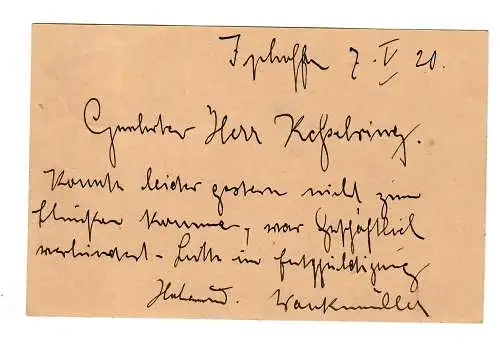 Iphofen 7. V 20.
Geehrter Herr Kesselring.
Konnte leider gestern nicht zum
kommen, war geschäftlich
verhindert. Bitte um Entschuldigung
Wankmüller